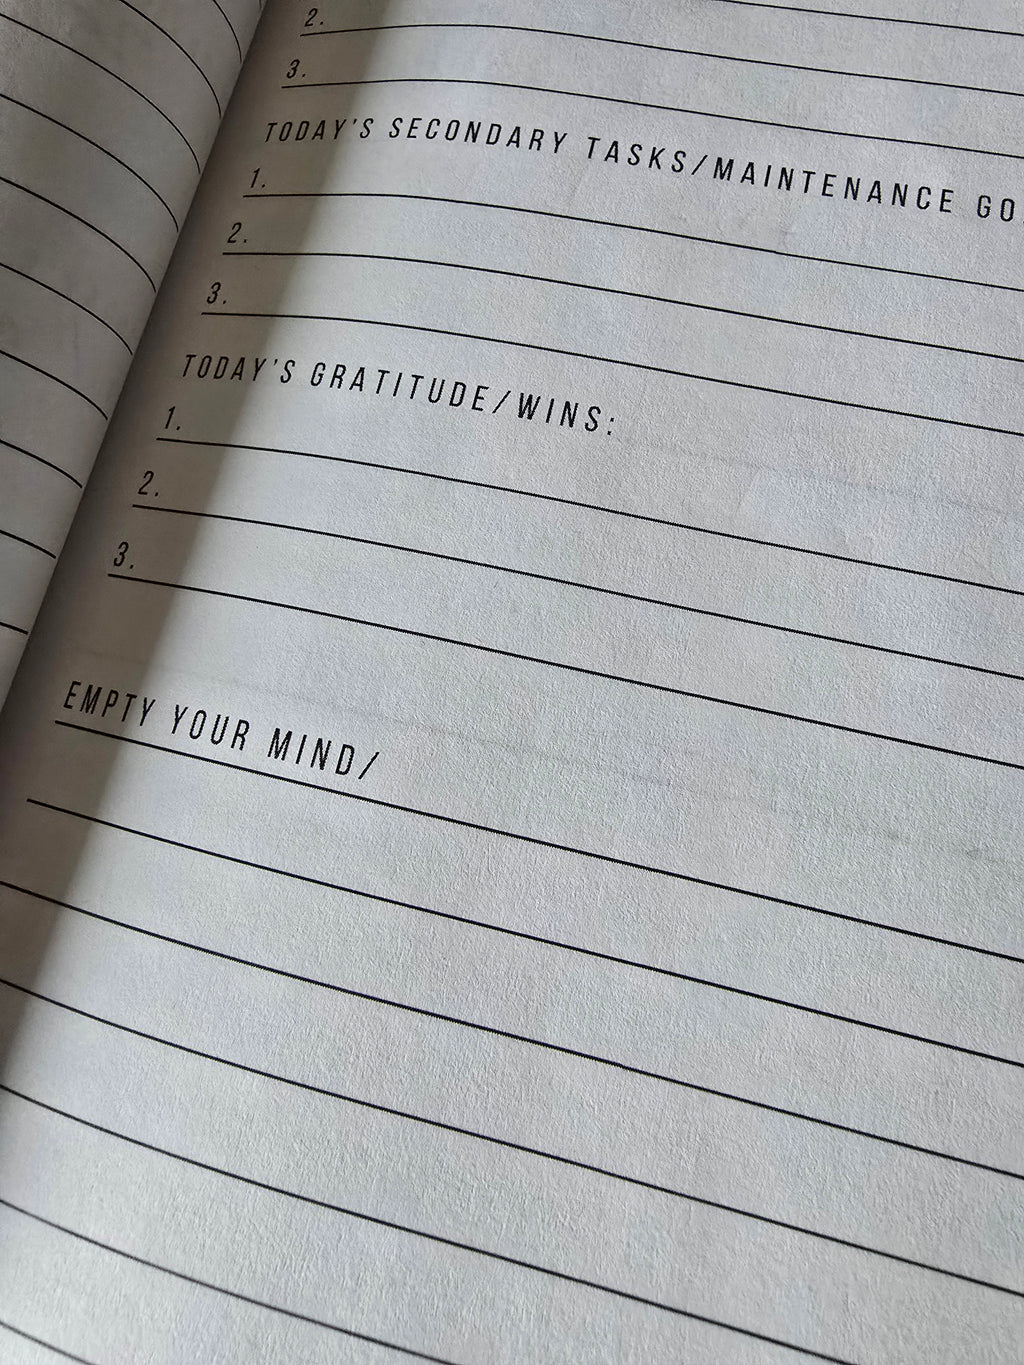 2.
3.
TODAY'S SECONDARY TASKS/MAINTENANCE GO
1.
2.
3.
TODAY'S GRATITUDE/WINS:
1.
2.
3.
EMPTY YOUR MIND/